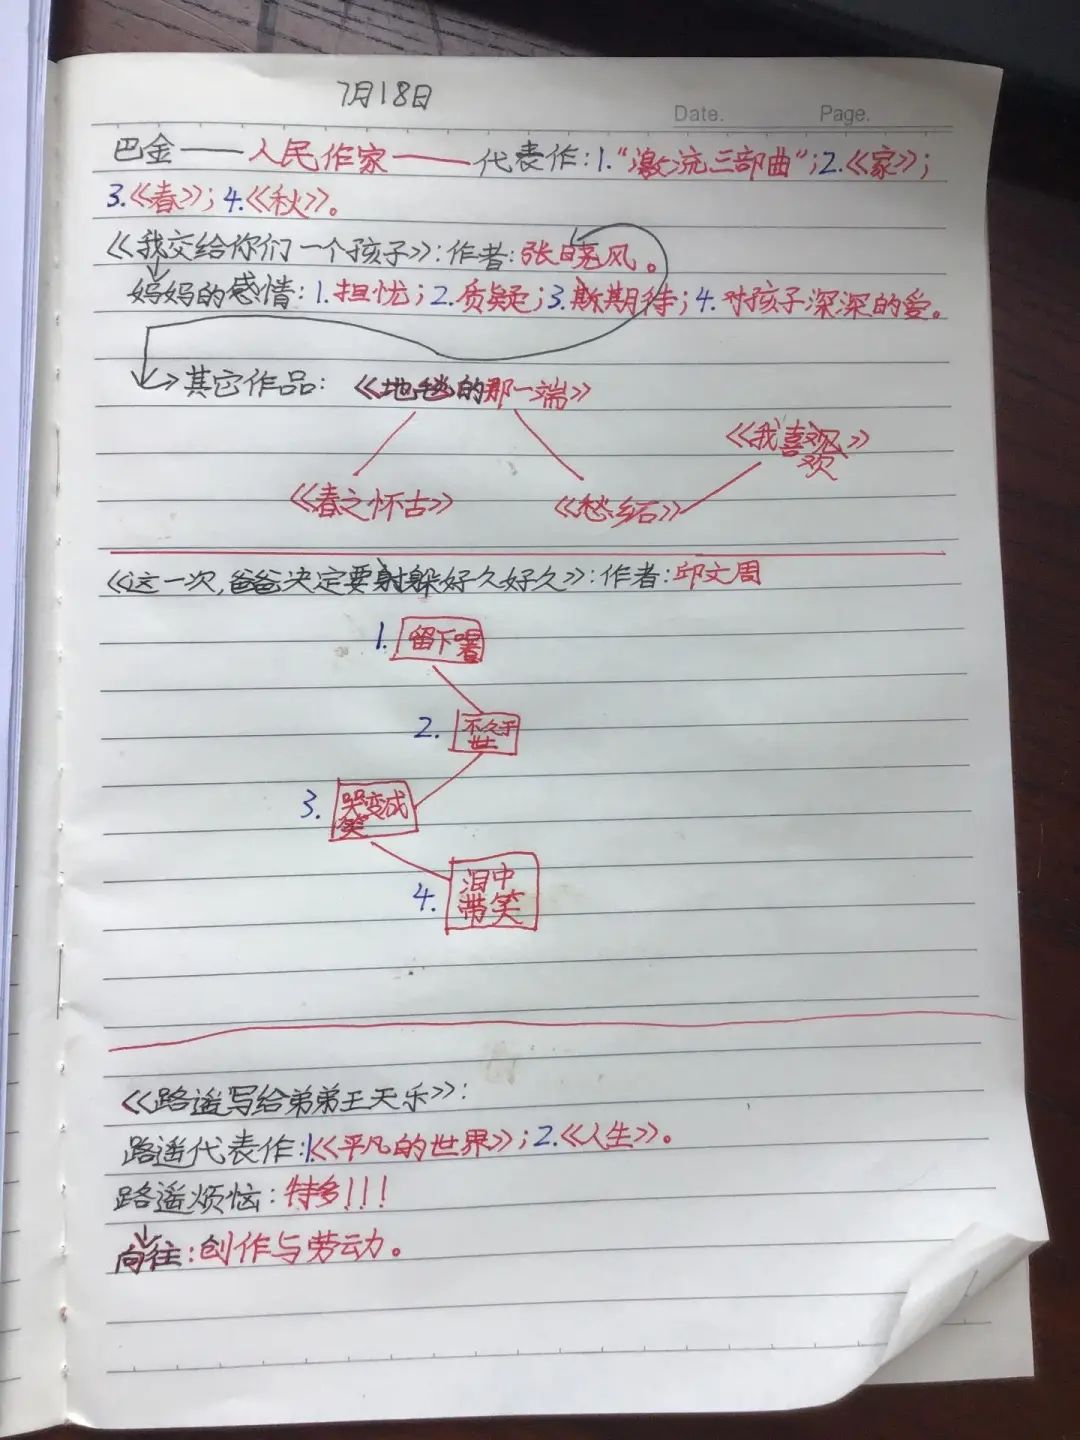 7月18日
Date.
Page.
巴金——人民作家——代表作:1.“激流三部曲”;2.《家》;
3.《春》;4.《秋》。
《我交给你们一个孩子》:作者:张晓风。
妈妈的感情:1.担忧;2.质疑;3.期待;4.对孩子深深的爱。
其它作品:《地毯的那一端》
《我喜欢》
《春之怀古》
《愁乡石》
《这一次,爸爸决定要躲好久好久》:作者:邱文周
1.留下
2.不久于
世
3.哭变成
笑
4.泪中
带笑
《路遥写给弟弟王天乐》:
路遥代表作:1.《平凡的世界》;2.《人生》。
路遥烦恼:特多!!!
向往:创作与劳动。